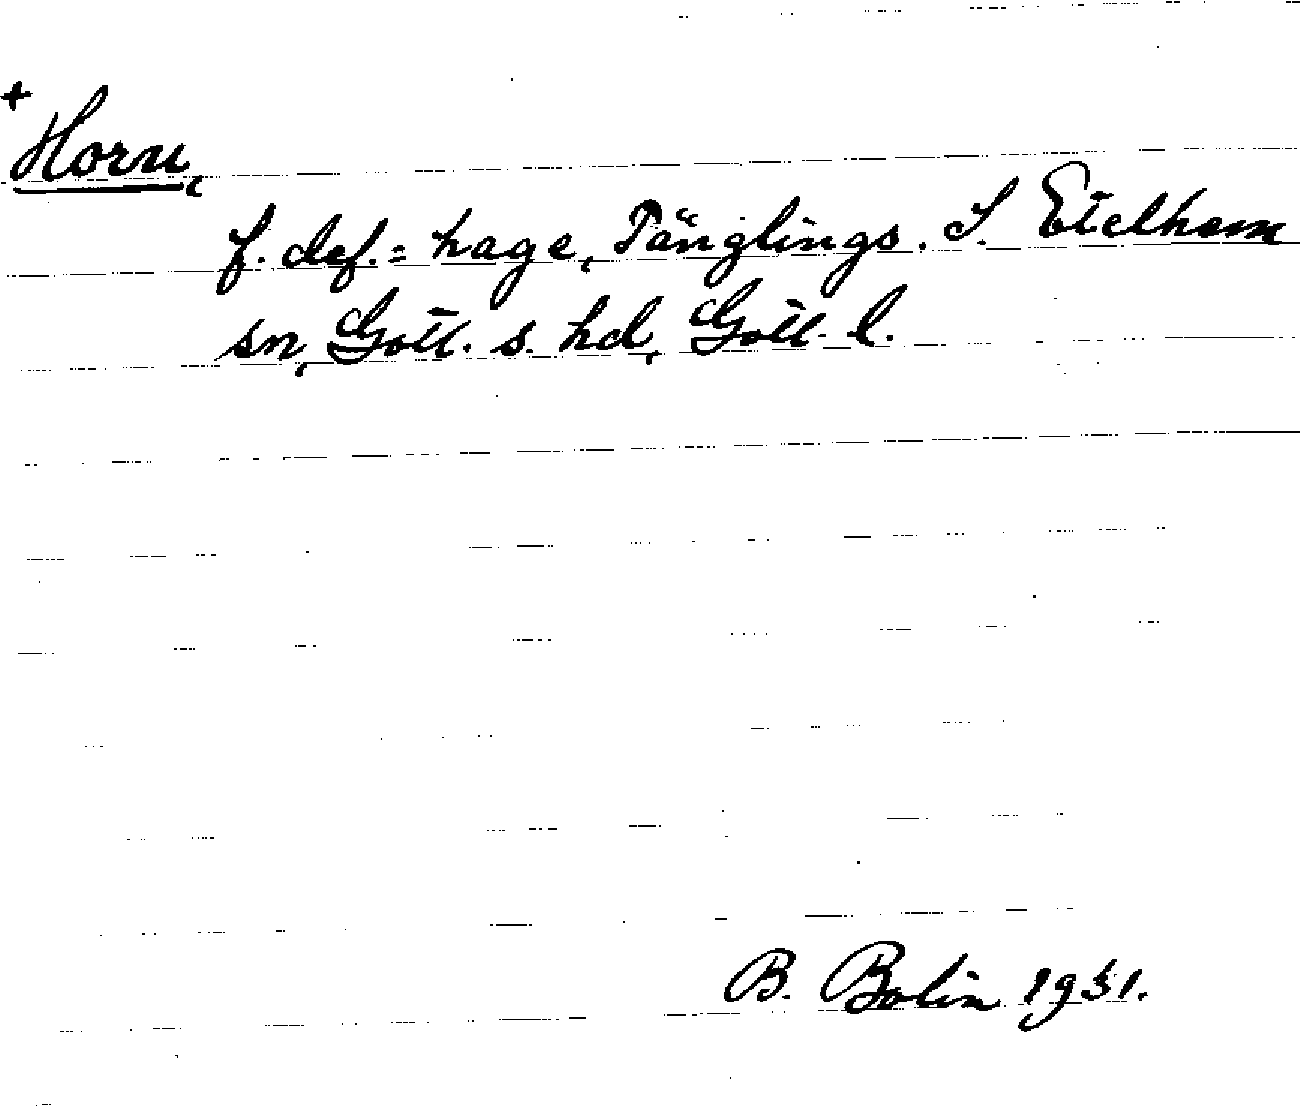 +
Horn,
f. def. = hage, Tänglings. S. Etelhem
sn, Gotl. s. hd, Gotl. l.
B. Bolin 1931.